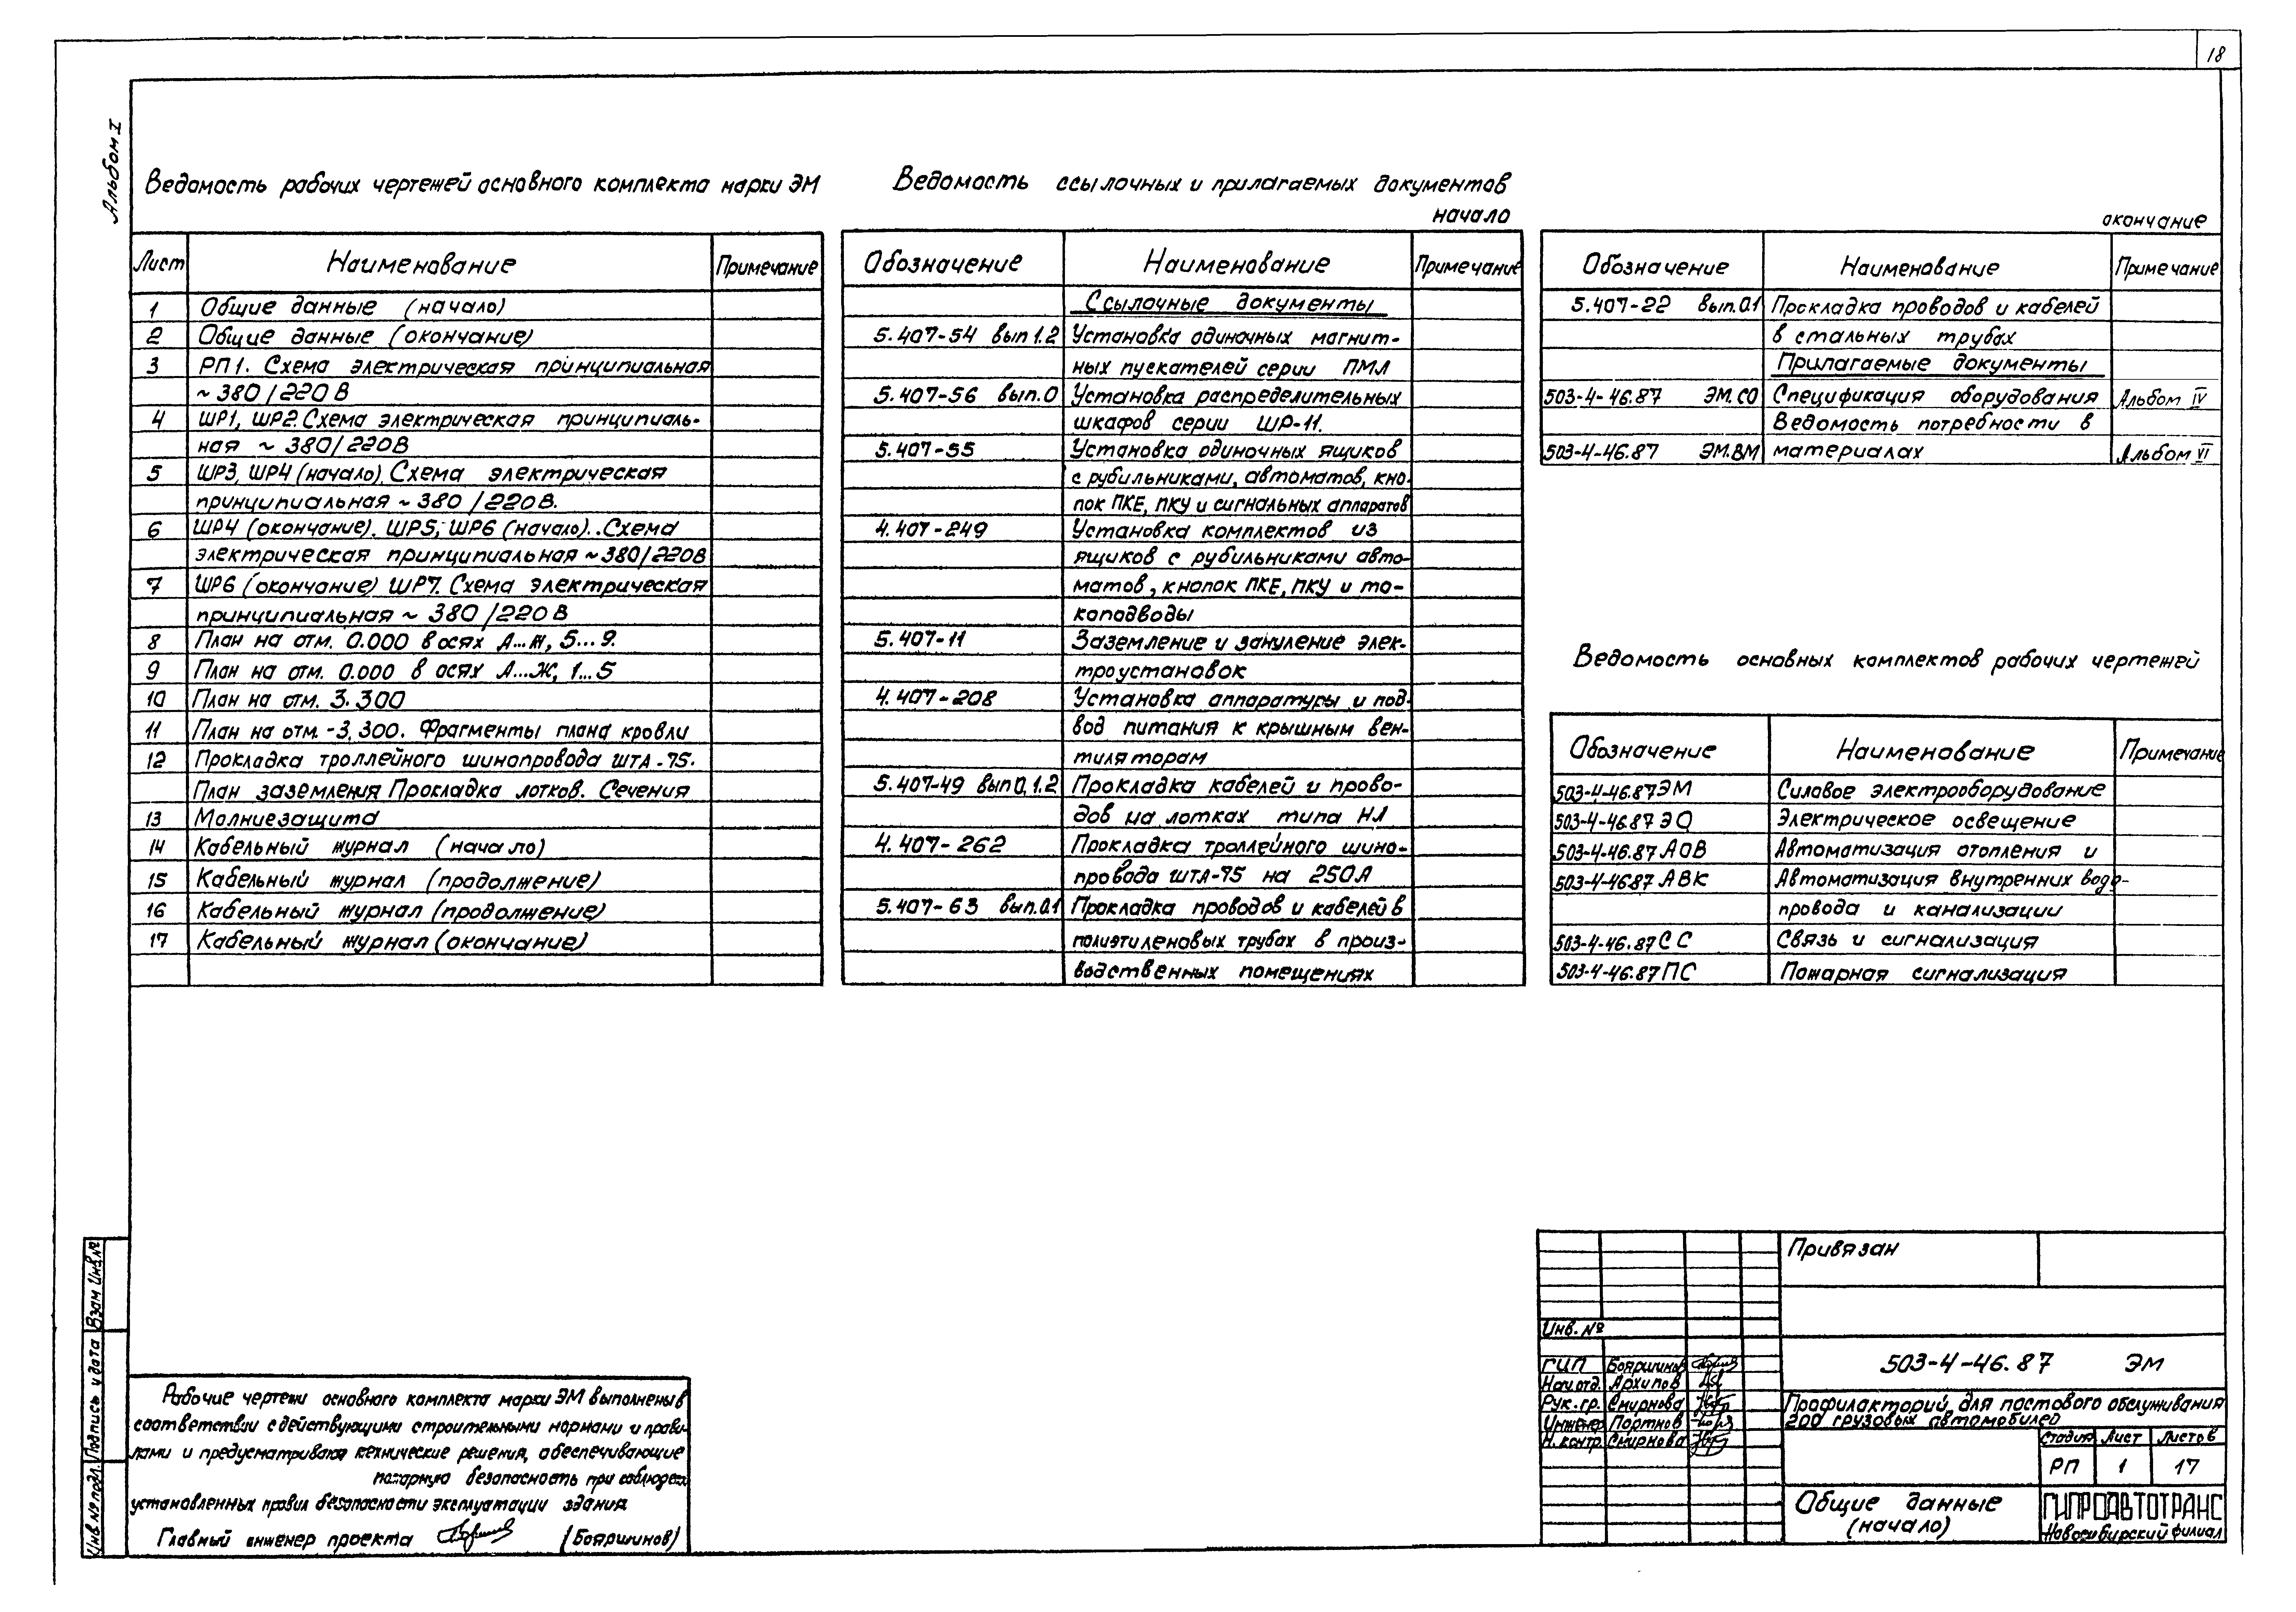 18
Альбом I
Ведомость рабочих чертежей основного комплекта марки ЭМ
Лист Наименование Примечание
1 Общие данные (начало)
2 Общие данные (окончание)
3 РП1. Схема электрическая принципиальная
~ 380/220 В
4 ШР1, ШР2. Схема электрическая принципиаль-
ная ~ 380/220В
5 ШР3, ШР4 (начало). Схема электрическая
принципиальная ~ 380/220В.
6 ШР4 (окончание). ШР5, ШР6 (начало). Схема
электрическая принципиальная ~380/220В
7 ШР6 (окончание) ШР7. Схема электрическая
принципиальная ~ 380/220В
8 План на отм. 0.000 в осях А...Ж, 5...9.
9 План на отм. 0.000 в осях А...Ж, 1...5
10 План на отм. 3.300
11 План на отм. -3.300. Фрагменты плана кровли
12 Прокладка троллейного шинопровода ШТА-75.
План заземления Прокладка лотков. Сечения
13 Молниезащита
14 Кабельный журнал (начало)
15 Кабельный журнал (продолжение)
16 Кабельный журнал (продолжение)
17 Кабельный журнал (окончание)
Ведомость ссылочных и прилагаемых документов
начало
Обозначение Наименование Примечание
Ссылочные документы
5.407-54 вып 1.2 Установка одиночных магнит-
ных пускателей серии ПМЛ
5.407-56 вып.0 Установка распределительных
шкафов серии ШР-11.
5.407-55 Установка одиночных ящиков
с рубильниками, автоматов, кно-
пок ПКЕ, ПКУ и сигнальных аппаратов
4.407-249 Установка комплектов из
ящиков с рубильниками авто-
матов, кнопок ПКЕ, ПКУ и то-
коподводы
5.407-11 Заземление и зануление элек-
троустановок
4.407-208 Установка аппаратуры и под-
вод питания к крышным вен-
тиляторам
5.407-49 вып 0,1.2 Прокладка кабелей и прово-
дов на лотках типа НЛ
4.407-262 Прокладка троллейного шино-
провода ШТА-75 на 250А
5.407-63 вып.0.1 Прокладка проводов и кабелей в
полиэтиленовых трубах в произ-
водственных помещениях
окончание
Обозначение Наименование Примечание
5.407-22 вып.0.1 Прокладка проводов и кабелей
в стальных трубах
Прилагаемые документы
503-4-46.87 ЭМ.СО Спецификация оборудования Альбом IV
Ведомость потребности в
503-4-46.87 ЭМ.ВМ материалах Альбом VI
Ведомость основных комплектов рабочих чертежей
Обозначение Наименование Примечание
503-4-46.87 ЭМ Силовое электрооборудование
503-4-46.87 ЭО Электрическое освещение
503-4-46.87 АОВ Автоматизация отопления и
503-4-46.87 АВК Автоматизация внутренних водо-
провода и канализации
503-4-46.87 СС Связь и сигнализация
503-4-46.87 ПС Пожарная сигнализация
Взам Инв.№
Подпись и дата
Инв № подл.
Рабочие чертежи основного комплекта марки ЭМ выполнены в
соответствии с действующими строительными нормами и прави-
лами и предусматривают технические решения, обеспечивающие
пожарную безопасность при соблюдении
установленных правил безопасности эксплуатации здания
Главный инженер проекта (Бояршинов)
Привязан
Инв. №
ГИП Бояршинов
Нач.отд. Архипов
Рук.гр. Смирнова
Инженер Портнов
Н.контр. Смирнова
503-4-46.87 ЭМ
Профилакторий для постового обслуживания
200 грузовых автомобилей
Стадия Лист Листов
РП 1 17
Общие данные
(начало)
ГИПРОАВТОТРАНС
Новосибирский филиал